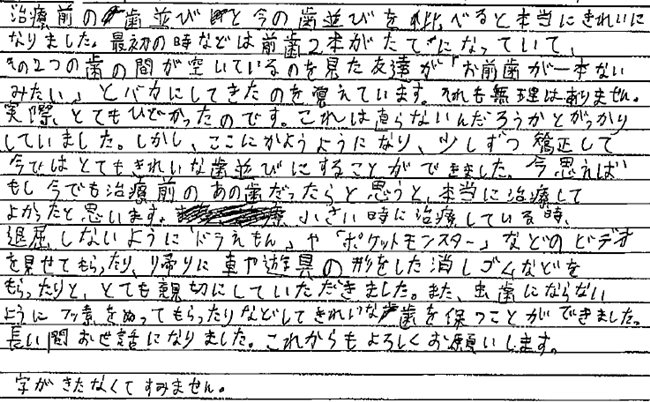 治療前の歯並びと今の歯並びを比べると本当にきれいに
なりました。最初の時などは前歯2本がたてになっていて、
その2つの歯の間が空いているのを見た友達が「お前歯が一本ない
みたい」とバカにしてきたのを覚えています。それも無理はありません。
実際、とてもひどかったのです。これは直らないんだろうかとがっかり
していました。しかし、ここにかようようになり、少しずつ矯正して
今ではとてもきれいな歯並びにすることができました。今思えば
もし今でも治療前のあの歯だったらと思うと、本当に治療して
よかったと思います。小さい時に治療している時、
退屈しないように「ドラえもん」や「ポケットモンスター」などのビデオ
を見せてもらったり、帰りに車や遊具の形をした消しゴムなどを
もらったりと、とても親切にしていただきました。また、虫歯にならない
ようにフッ素をぬってもらったりなどしてきれいな歯を保つことができました。
長い間お世話になりました。これからもよろしくお願いします。
字がきたなくてすみません。